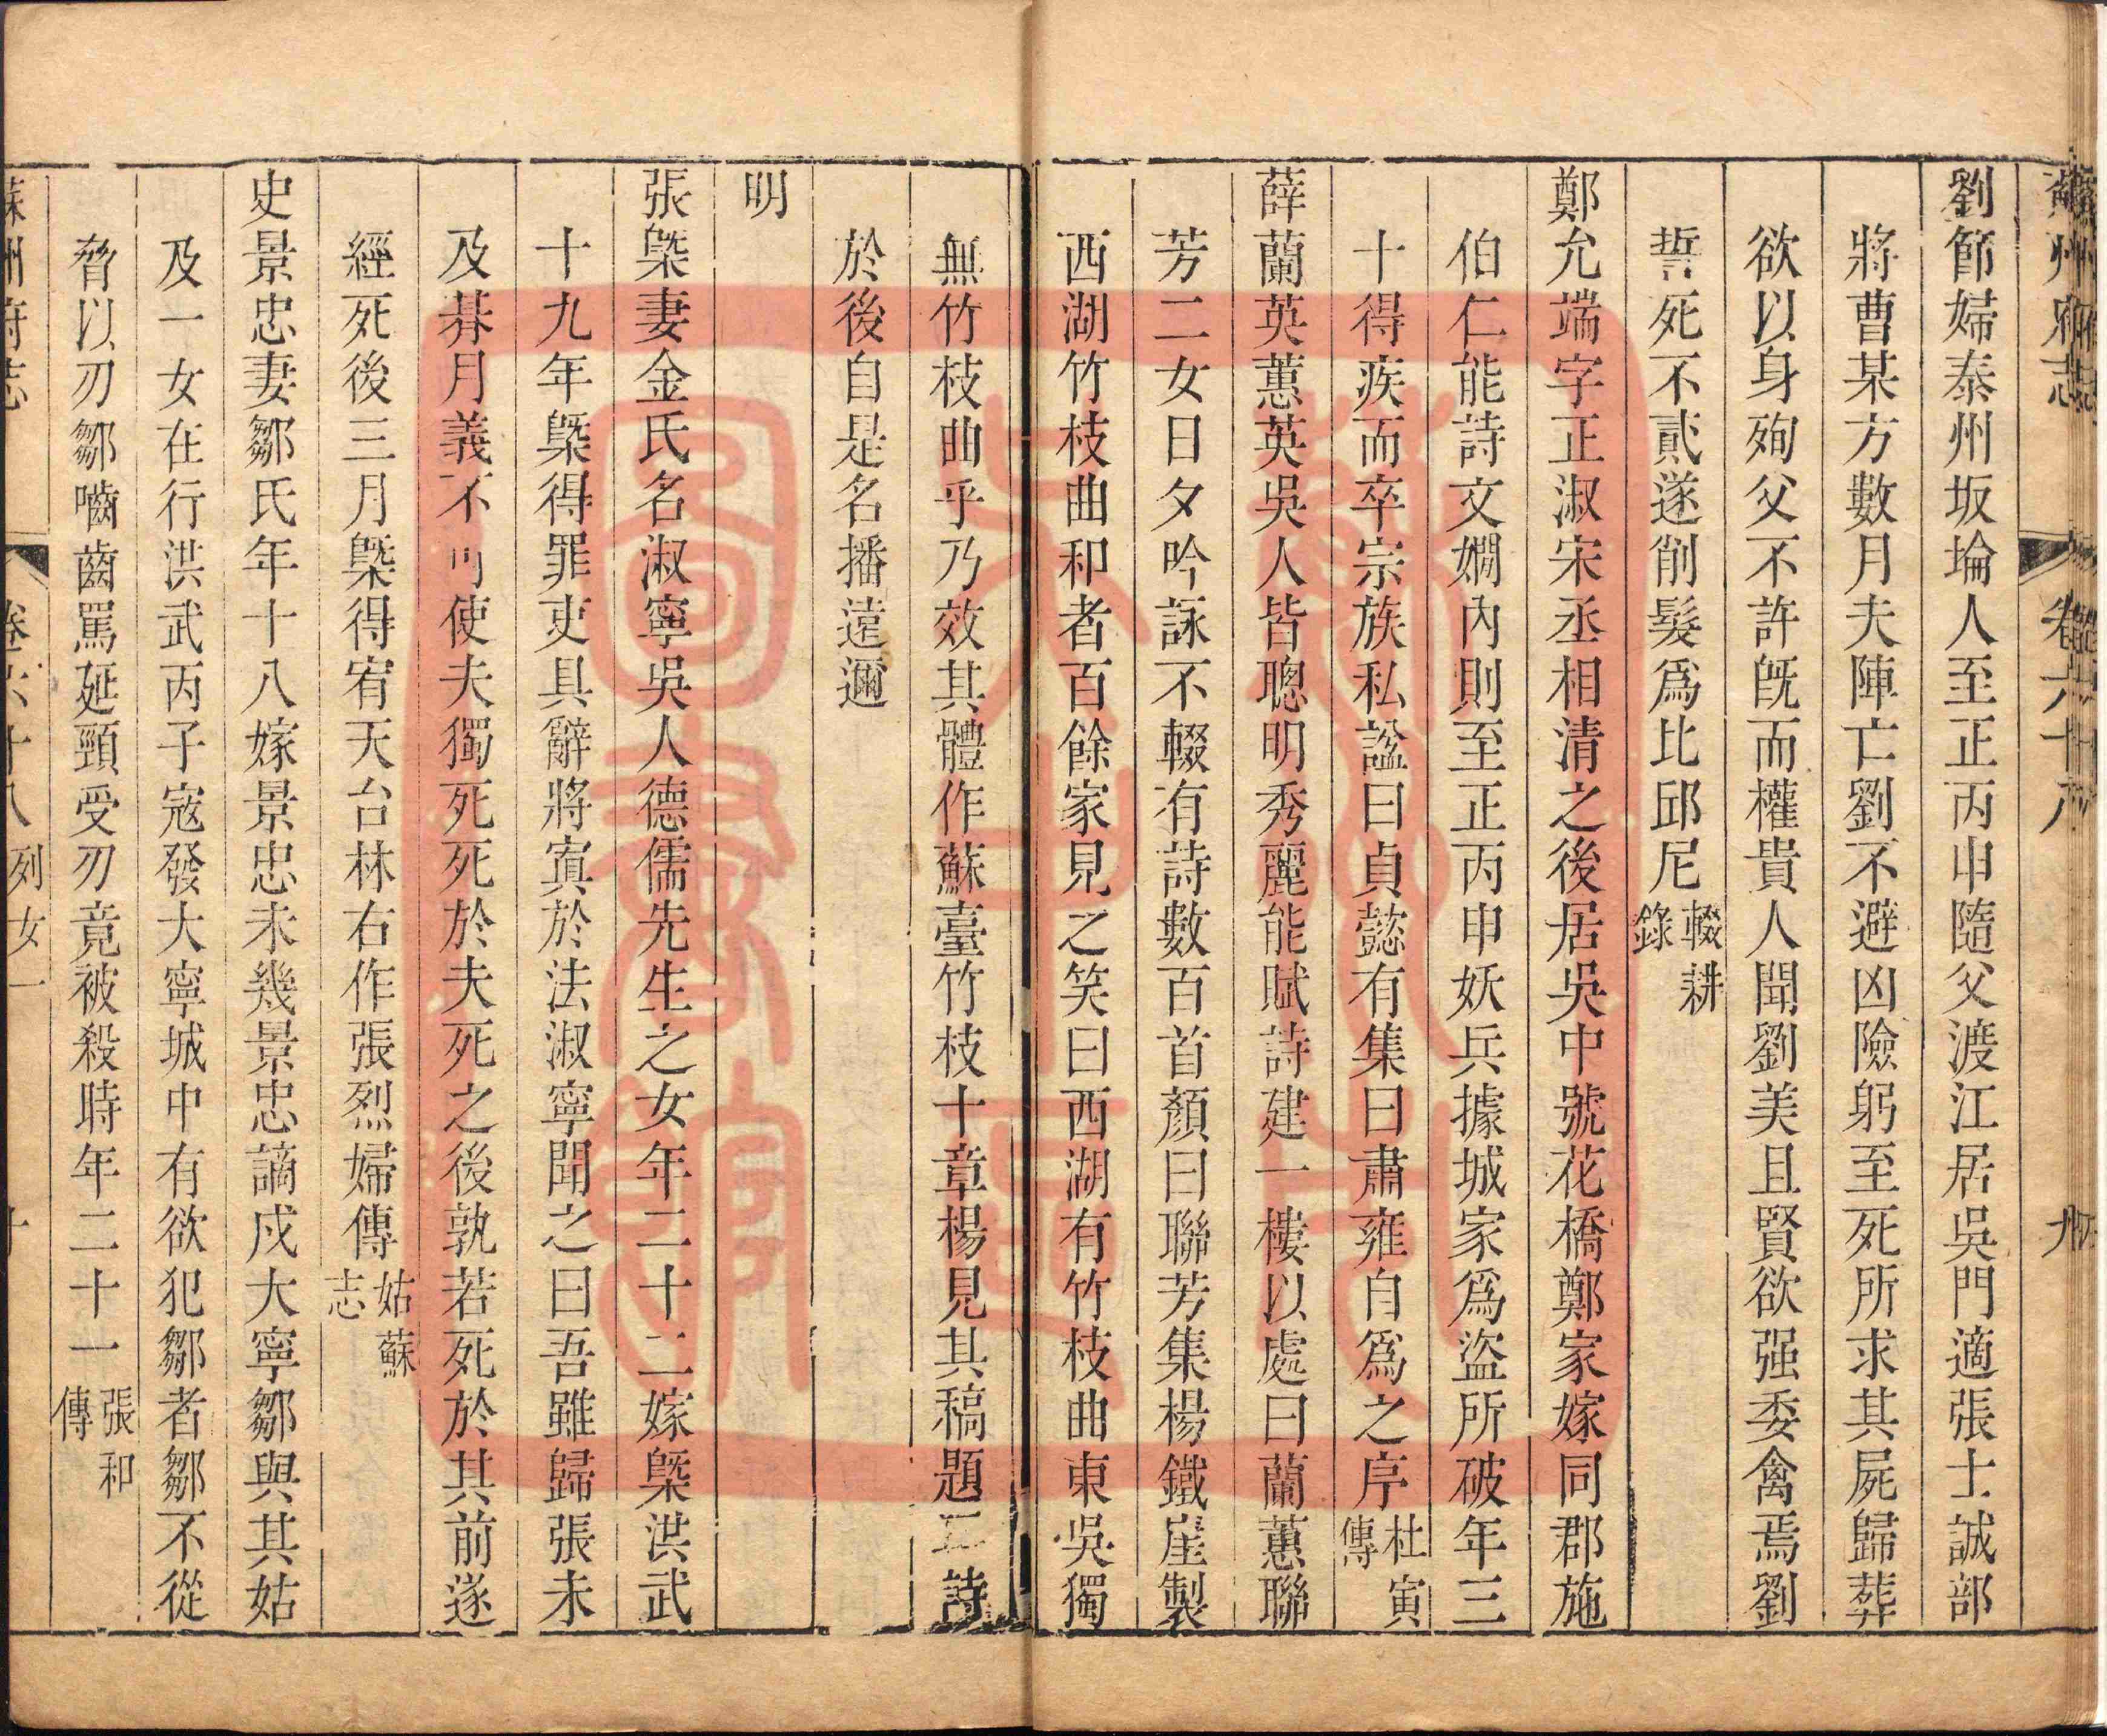 蘇州府志 卷六十八 九
劉節婦泰州坂埨人至正丙申隨父渡江居吳門適張士誠部
將曹某方數月夫陣亡劉不避凶險躬至死所求其屍歸葬
欲以身殉父不許旣而權貴人聞劉美且賢欲强委禽焉劉
誓死不貳遂削髮爲比邱尼輟耕錄
鄭允端字正淑宋丞相清之後居吳中號花橋鄭家嫁同郡施
伯仁能詩文嫺內則至正丙申妖兵據城家爲盜所破年三
十得疾而卒宗族私諡曰貞懿有集曰肅雍自爲之序杜寅傳
薛蘭英蕙英吳人皆聰明秀麗能賦詩建一樓以處曰蘭蕙聯
芳二女日夕吟詠不輟有詩數百首顏曰聯芳集楊鐵崖製
西湖竹枝曲和者百餘家見之笑曰西湖有竹枝曲東吳獨
無竹枝曲乎乃效其體作蘇臺竹枝十章楊見其稿題二詩
於後自是名播遠邇
明
張㮣妻金氏名淑寧吳人德儒先生之女年二十二嫁㮣洪武
十九年㮣得罪吏具辭將寘於法淑寧聞之曰吾雖歸張未
及朞月義不可使夫獨死死於夫死之後孰若死於其前遂
經死後三月㮣得宥天台林右作張烈婦傳姑蘇志
史景忠妻鄒氏年十八嫁景忠未幾景忠謫戍大寧鄒與其姑
及一女在行洪武丙子寇發大寧城中有欲犯鄒者鄒不從
脅以刃鄒嚙齒罵延頸受刃竟被殺時年二十一張和傳
蘇州府志 卷六十八列女一 十